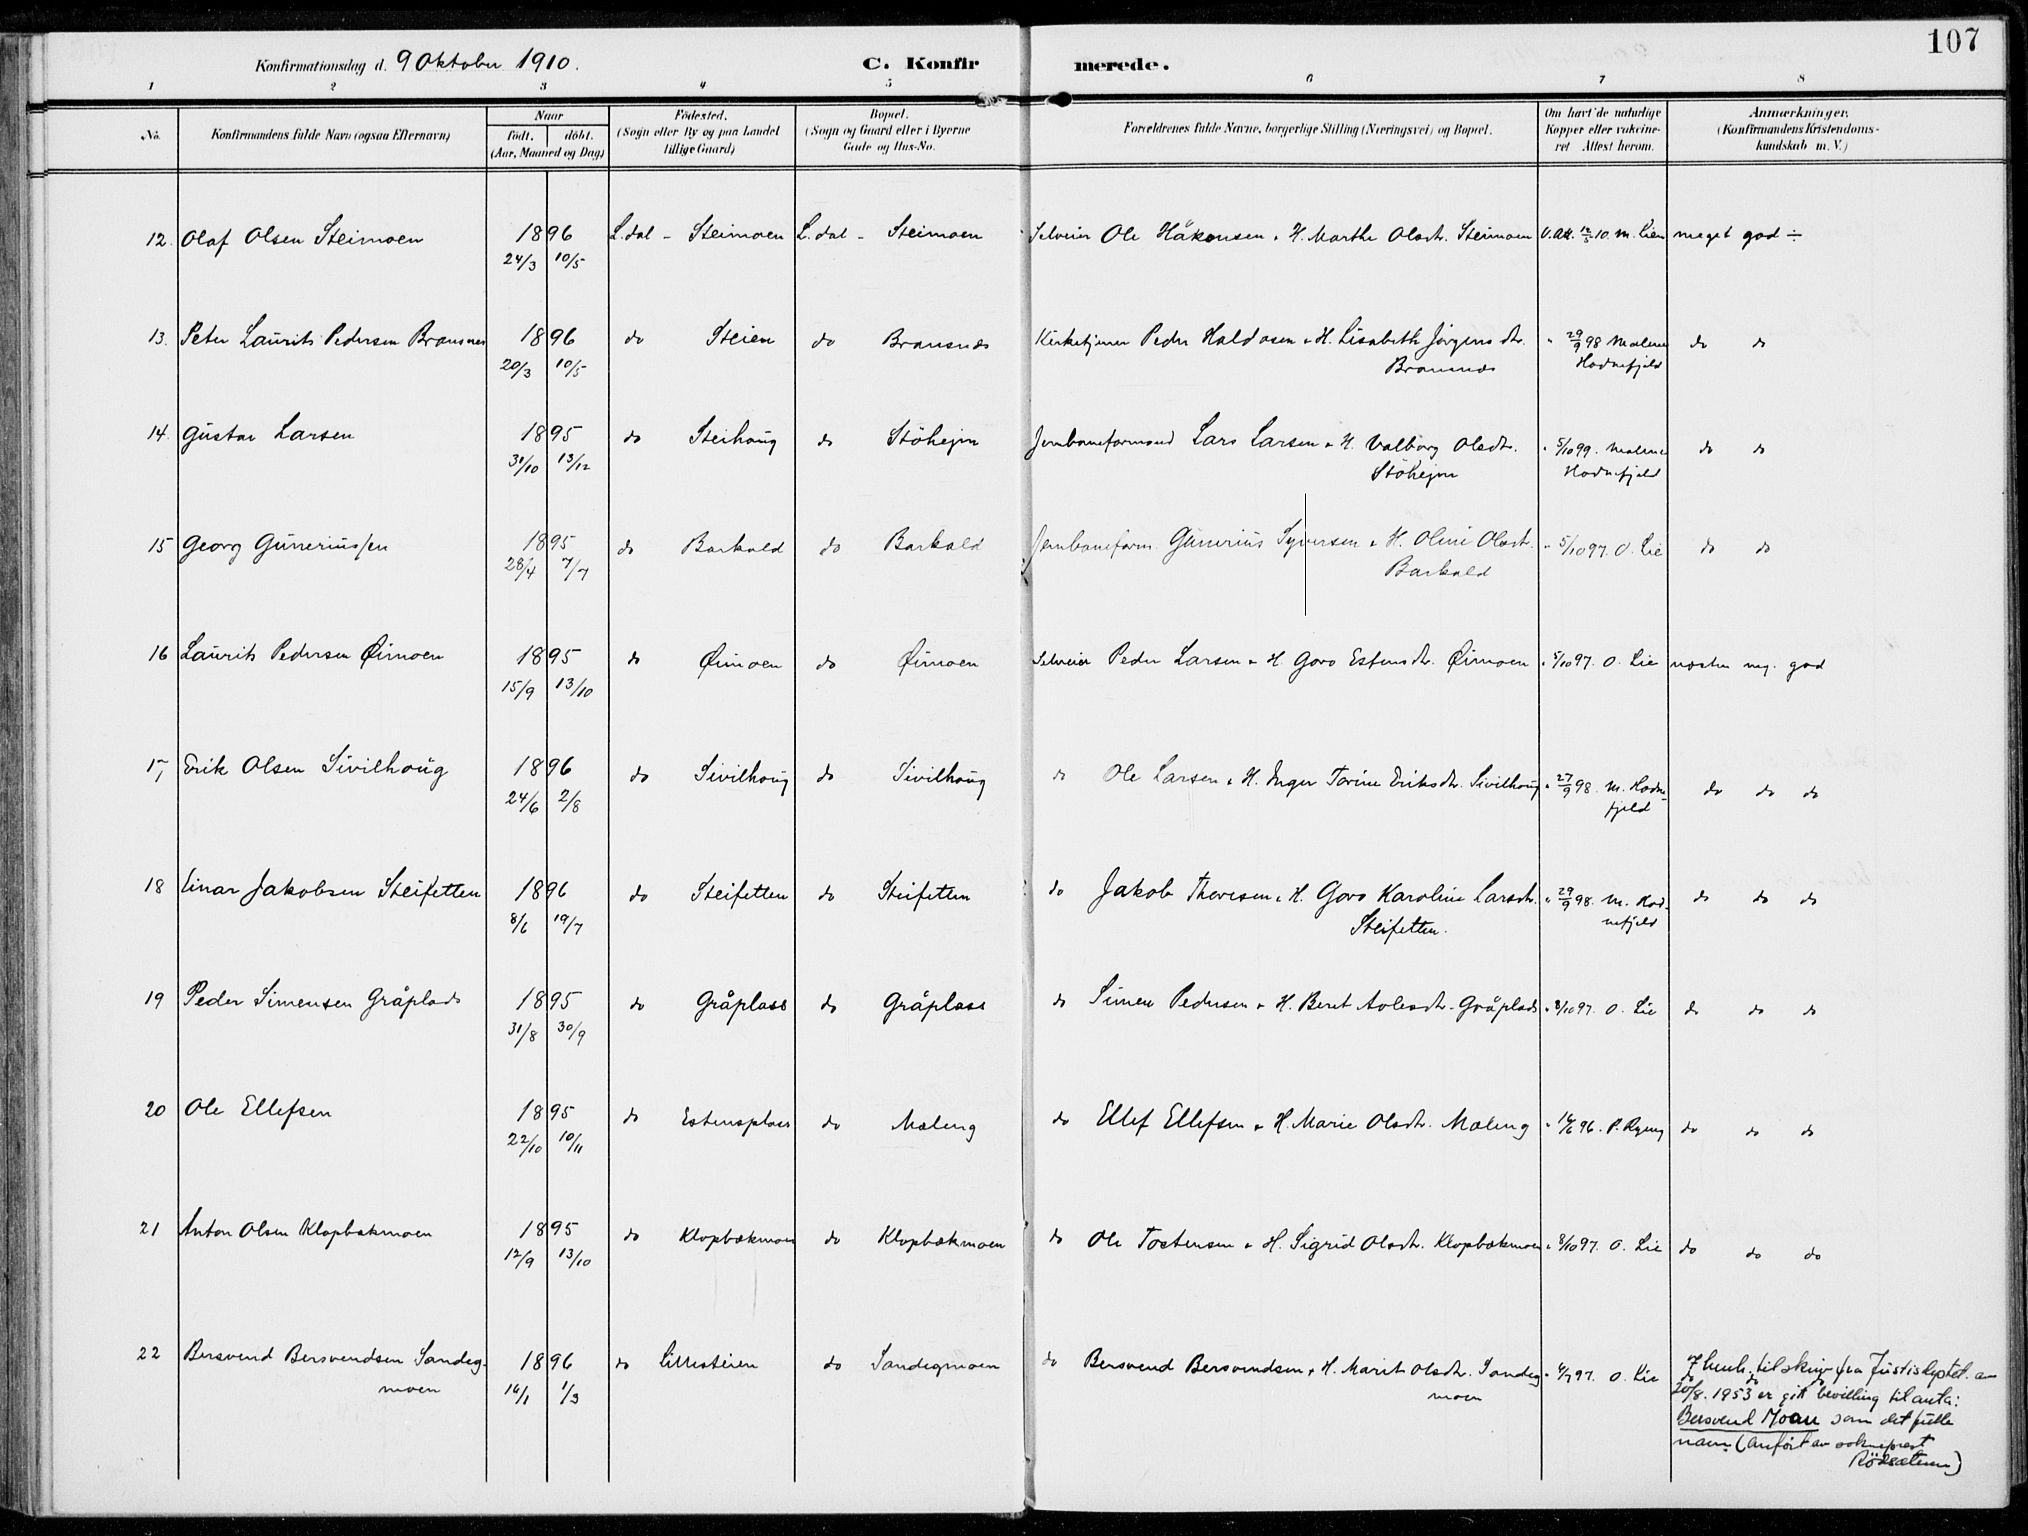 107
Konfirmationsdag d. 9 Oktober 1910. C. Konfirmerede.
1 2 3 4 5 6 7 8
No. Konfirmandens fulde Navn (ogsaa Efternavn) Naar födt. döbt. (Aar, Maaned og Dag) Födested. (Sogn eller By og paa Landet tillige Gaard) Bopæl. (Sogn og Gaard eller i Byerne Gade og Hus-No. Forældrenes fulde Navne, borgerlige Stilling (Næringsvei) og Bopæl. Om havt de naturlige Kopper eller vakcineret Attest herom. Anmærkninger. (Konfirmandens Kristendomskundskab m.V.)
12. Olaf Olsen Steimoen 1896 L.dal - Steimoen L. dal - Steimoen Selveier Ole Håkonsen & H. Marthe Olsdtr. Steimoen V. Att. 12/5 10. M. Lien meget god ÷
24/3 10/5
13. Peter Laurits Pedersen Bransnes 1896 do Steien do Bransnæs Kirketjener Peder Haldosen & H. Lisabeth Jörgensdtr. " 29/9 98 Malene do do
20/3 10/5 Bransnæs Hodnefjeld
14. Gustav Larsen 1895 do Steihoug do Stöhejm Jernbaneformand Lars Larsen & H. Valborg Olsdtr. " 5/10 99. Malene do do
31/10 13/12 Stöhejm Hodnefjeld
15 Georg Gunerius/en 1895 do Barkald do Barkald Jernbaneform. Gunerius Syversen & H. Oline Olsdtr. " 5/10 97. O. Lie do do
28/4 7/7 Barkald
16 Laurits Pedersen Øimoen 1895 do Øimoen do Øimoen Selveier Peder Larsen & H. Goro Estensdtr. Øimoen " 5/10 97. O. Lie næsten meg. god
15/9 13/10
17 Erik Olsen Sivilhoug 1896 do Sivilhoug do Sivilhoug do Ole Larsen & H. Inger Torine Eriksdtr. Sivilhoug " 27/9 98. M. Hodne- do do do
24/6 2/8 fjeld
18 Einar Jakobsen Steifetten 1896 do Steifetten do Steifetten do Jakob Thoresen & H. Goro Karoline Larsdtr. " 29/9 98. M. Hod- do do do
8/6 19/7 Steifetten. nefjeld
19 Peder Simensen Gråplads 1895 do Gråplass do Gråplass do Simen Pedersen & H. Beret Avlesdtr. Gråplads " 8/10 97. O. Lie do do do
31/8 30/9
20 Ole Ellefsen 1895 do Estensplass do Mæleng do Ellef Ellefsen & H. Marie Olsdtr. Mæleng " 96. P. Ryeng do do do
22/10 10/11
21 Anton Olsen Klopbækmoen 1895 do Klopbækmoen do Klopbækmoen do Ole Tostensen & H. Sigrid Olsdtr. Klopbækmoen " 8/10 97. O. Lie do do do
12/9 13/10
22 Bersvend Bersvendsen Sandeg- 1896 do Lillesteien do Sandegmoen do Bersvend Bersvendsen & H. Marit Olsdtr. Sandeg 97. O. Lie do do do
moen 16/1 1/3 moen
I henh. til skriv fra Justisdeptet. av
20/8. 1953 er gitt bevilling til anta:
Bersvend Moan som det fulle
navn (anført av sokneprest
Rödsætern)